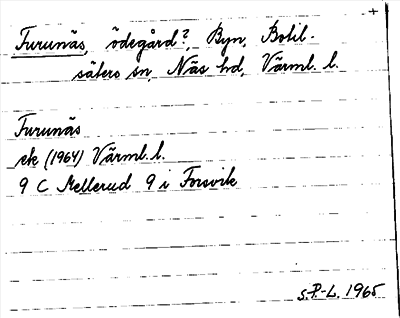 +
Furunäs, ödegård?, Byn, Botil-
säters sn, Näs hd, Värml. l.
Furunäs
ek (1964) Värml. l.
9 C Mellerud 9 i Forsvik
S.P.-L. 1965